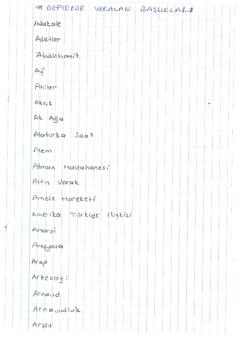 * DEFTERDE YERALAN BAŞLIKLAR *
Adakale
Adetler
Abdülhamit
Af
Ahiler
Akıl
Ak Ağa
Alaturka Saat
Alem
Alman Hastahanesi
Altın Varak
Amele Hareketi
Amerika Türkiye ilişkisi
Anarşi
Anayasa
Arap
Arkeoloji
Arnavud
Arnavudluk
Arşiv